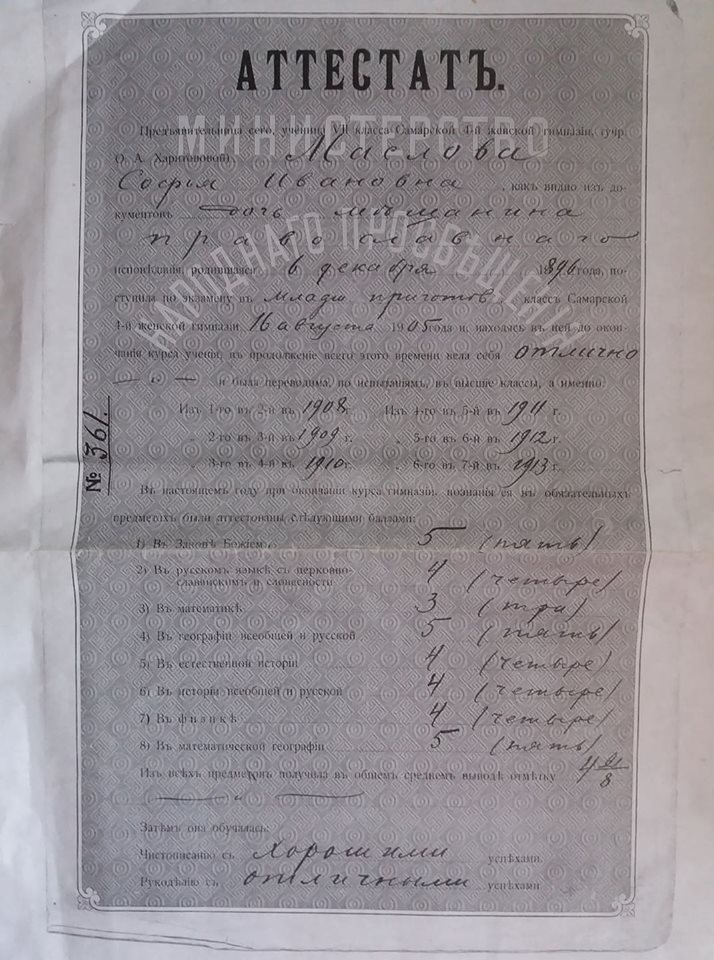 АТТЕСТАТЪ.
МИНИСТЕРСТВО
НАРОДНАГО ПРОСВѢЩЕНІЯ
Предъявительница сего, ученица VII класса Самарской 4-й женской гимназіи, (учр.
О. А. Харитоновой) Маслова
Софья Ивановна, какъ видно изъ до-
кументовъ дочь мѣщанина
православнаго
исповѣданія, родившаяся 6 декабря 1896 года, по-
ступила по экзамену въ младш. приготов. классъ Самарской
4-й женской гимназіи 16 августа 1905 года и, находясь въ ней до окон-
чанія курса ученія, въ продолженіе всего этого времени вела себя отлично
— „ — и была переводима, по испытаніямъ, въ высшіе классы, а именно:
Изъ 1-го въ 2-й въ 1908 г. Изъ 4-го въ 5-й въ 1911 г.
„ 2-го въ 3-й въ 1909 г. „ 5-го въ 6-й въ 1912 г.
„ 3-го въ 4-й въ 1910 г. „ 6-го въ 7-й въ 1913 г.
№ 361.
Въ настоящемъ году при окончаніи курса гимназіи, познанія ея въ обязательныхъ
предметахъ были аттестованы слѣдующими баллами:
1) Въ Законѣ Божіемъ 5 (пять)
2) Въ русскомъ языкѣ съ церковно-
славянскимъ и словесности 4 (четыре)
3) Въ математикѣ 3 (три)
4) Въ географіи всеобщей и русской 5 (пять)
5) Въ естественной исторіи 4 (четыре)
6) Въ исторіи всеобщей и русской 4 (четыре)
7) Въ физикѣ 4 (четыре)
8) Въ математической географіи 5 (пять)
Изъ всѣхъ предметовъ получила въ общемъ среднемъ выводѣ отмѣтку 4
— „ —
Затѣмъ она обучалась:
Чистописанію съ хорошими успѣхами.
Рукодѣлію съ отличными успѣхами